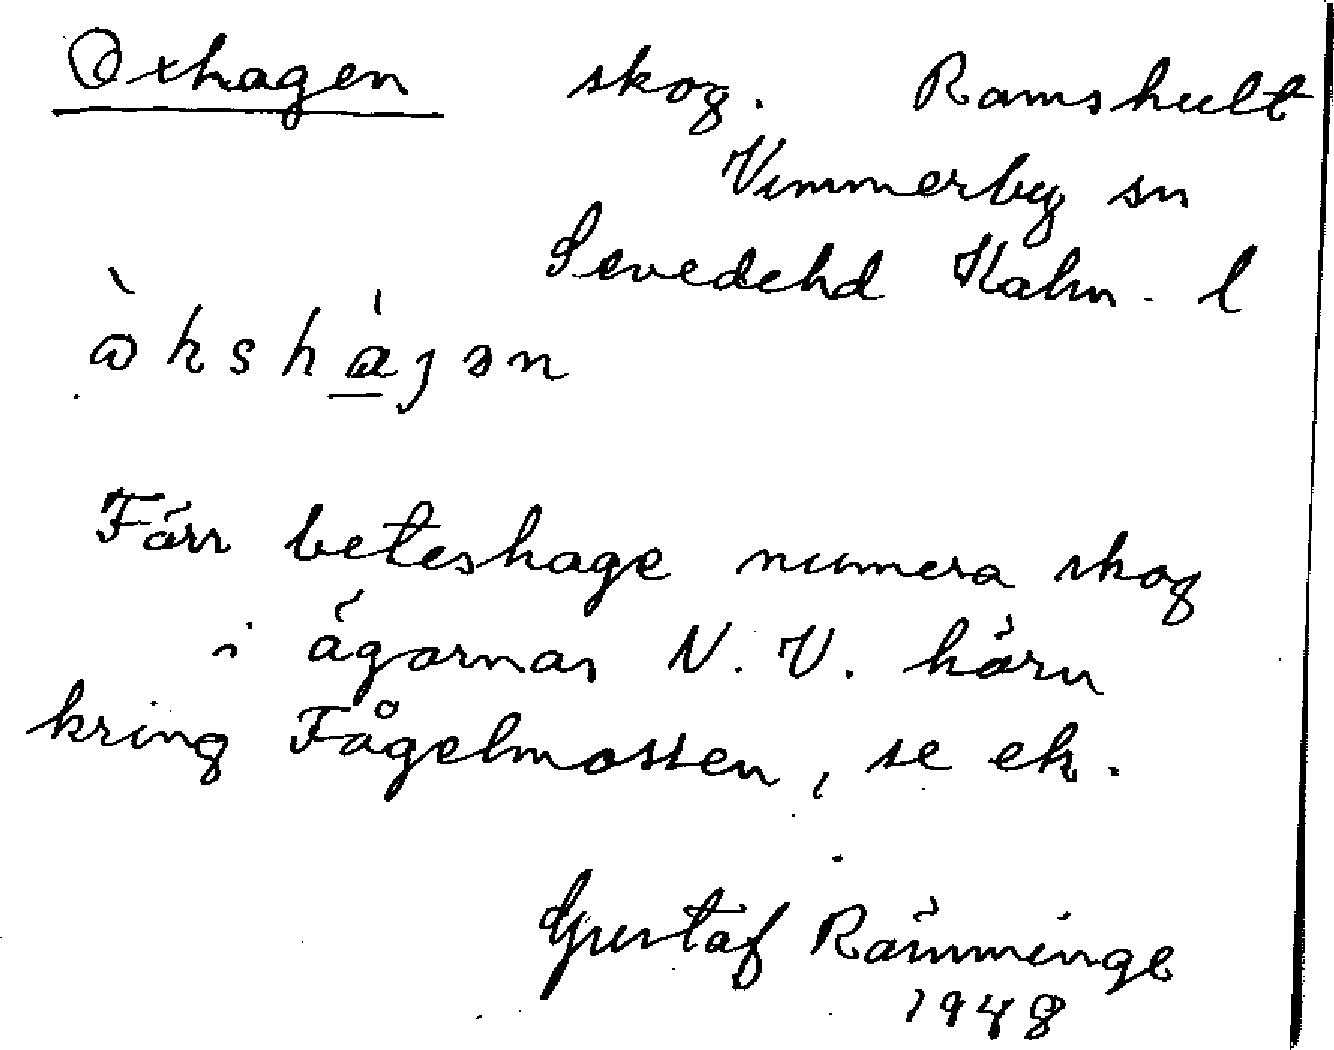 Oxhagen skog. Ramshult
Vimmerby sn
Sevedehd Kalm. l
ὼkshájən
Förr beteshage numera skog
i ägornas N.V. hörn
kring Fågelmossen, se ek.
Gustaf Rämminge
1948